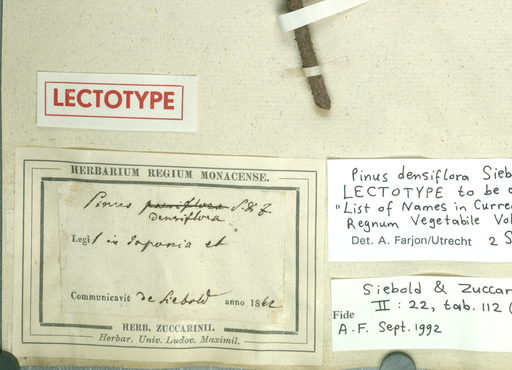 LECTOTYPE
HERBARIUM REGIUM MONACENSE.
Pinus parviflora S. & Z
Densiflora
Legit in Japonia et
Communicavit de Siebold anno 1842
HERB. ZUCCARINII.
Herbar. Univ. Ludov. Maximil.
Pinus densiflora Sieb
LECTOTYPE to be
"List of Names in Curre
Regnum Vegetabile Vol
Det. A. Farjon/Utrecht 2 S
Siebold & Zuccar
II : 22, tab. 112 (
Fide
A.F. Sept. 1992